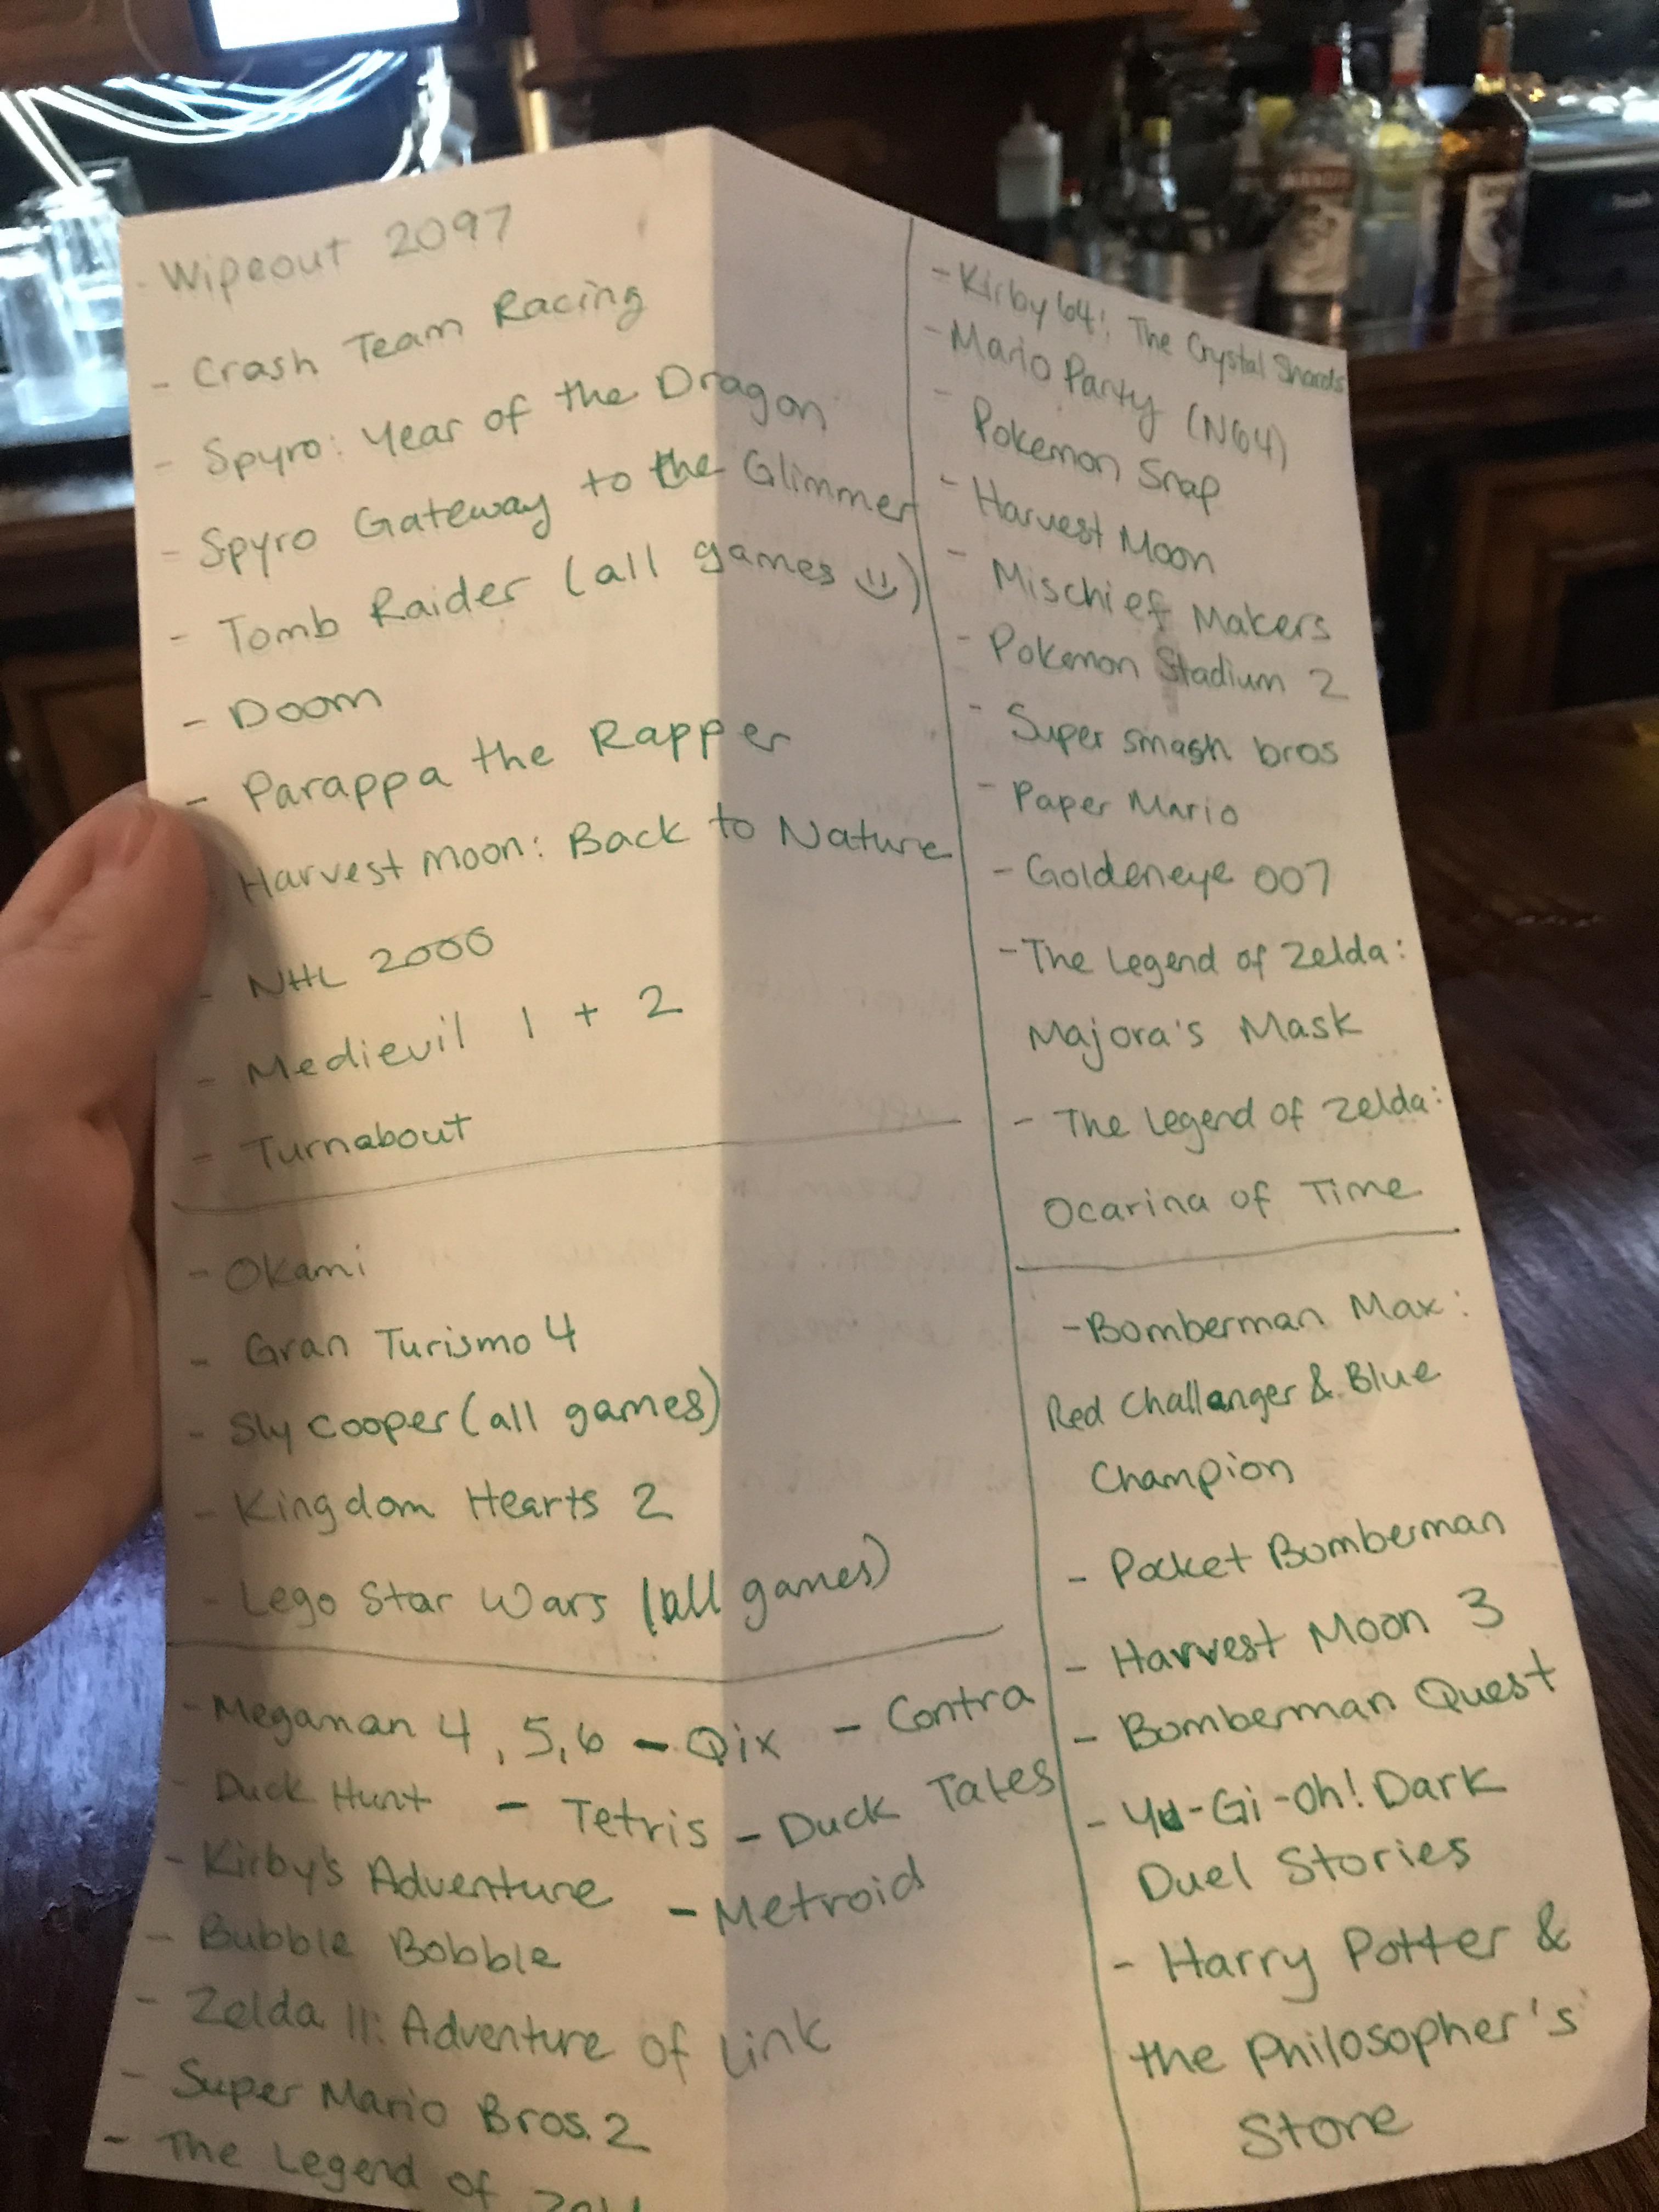 - Wipeout 2097
- Crash Team Racing
- Spyro: Year of the Dragon
- Spyro Gateway to the Glimmer
- Tomb Raider (all games ☺)
- Doom
- Parappa the Rapper
Harvest Moon: Back to Nature
- NHL 2000
- Medievil 1 + 2
- Turnabout
- Okami
- Gran Turismo 4
- Sly Cooper (all games)
- Kingdom Hearts 2
- Lego Star Wars (all games)
- Megaman 4, 5, 6 - Qix - Contra
- Duck Hunt - Tetris - Duck Tales
- Kirby's Adventure - Metroid
- Bubble Bobble
- Zelda II: Adventure of Link
- Super Mario Bros. 2
- The Legend of
- Kirby 64: The Crystal Shards
- Mario Party (N64)
- Pokemon Snap
- Harvest Moon
- Mischief Makers
- Pokemon Stadium 2
- Super smash bros
- Paper Mario
- Goldeneye 007
- The Legend of Zelda:
Majora's Mask
- The Legend of Zelda:
Ocarina of Time
- Bomberman Max:
Red Challanger & Blue
Champion
- Pocket Bomberman
- Harvest Moon 3
- Bomberman Quest
- Yu-Gi-Oh! Dark
Duel Stories
- Harry Potter &
the Philosopher's
Stone